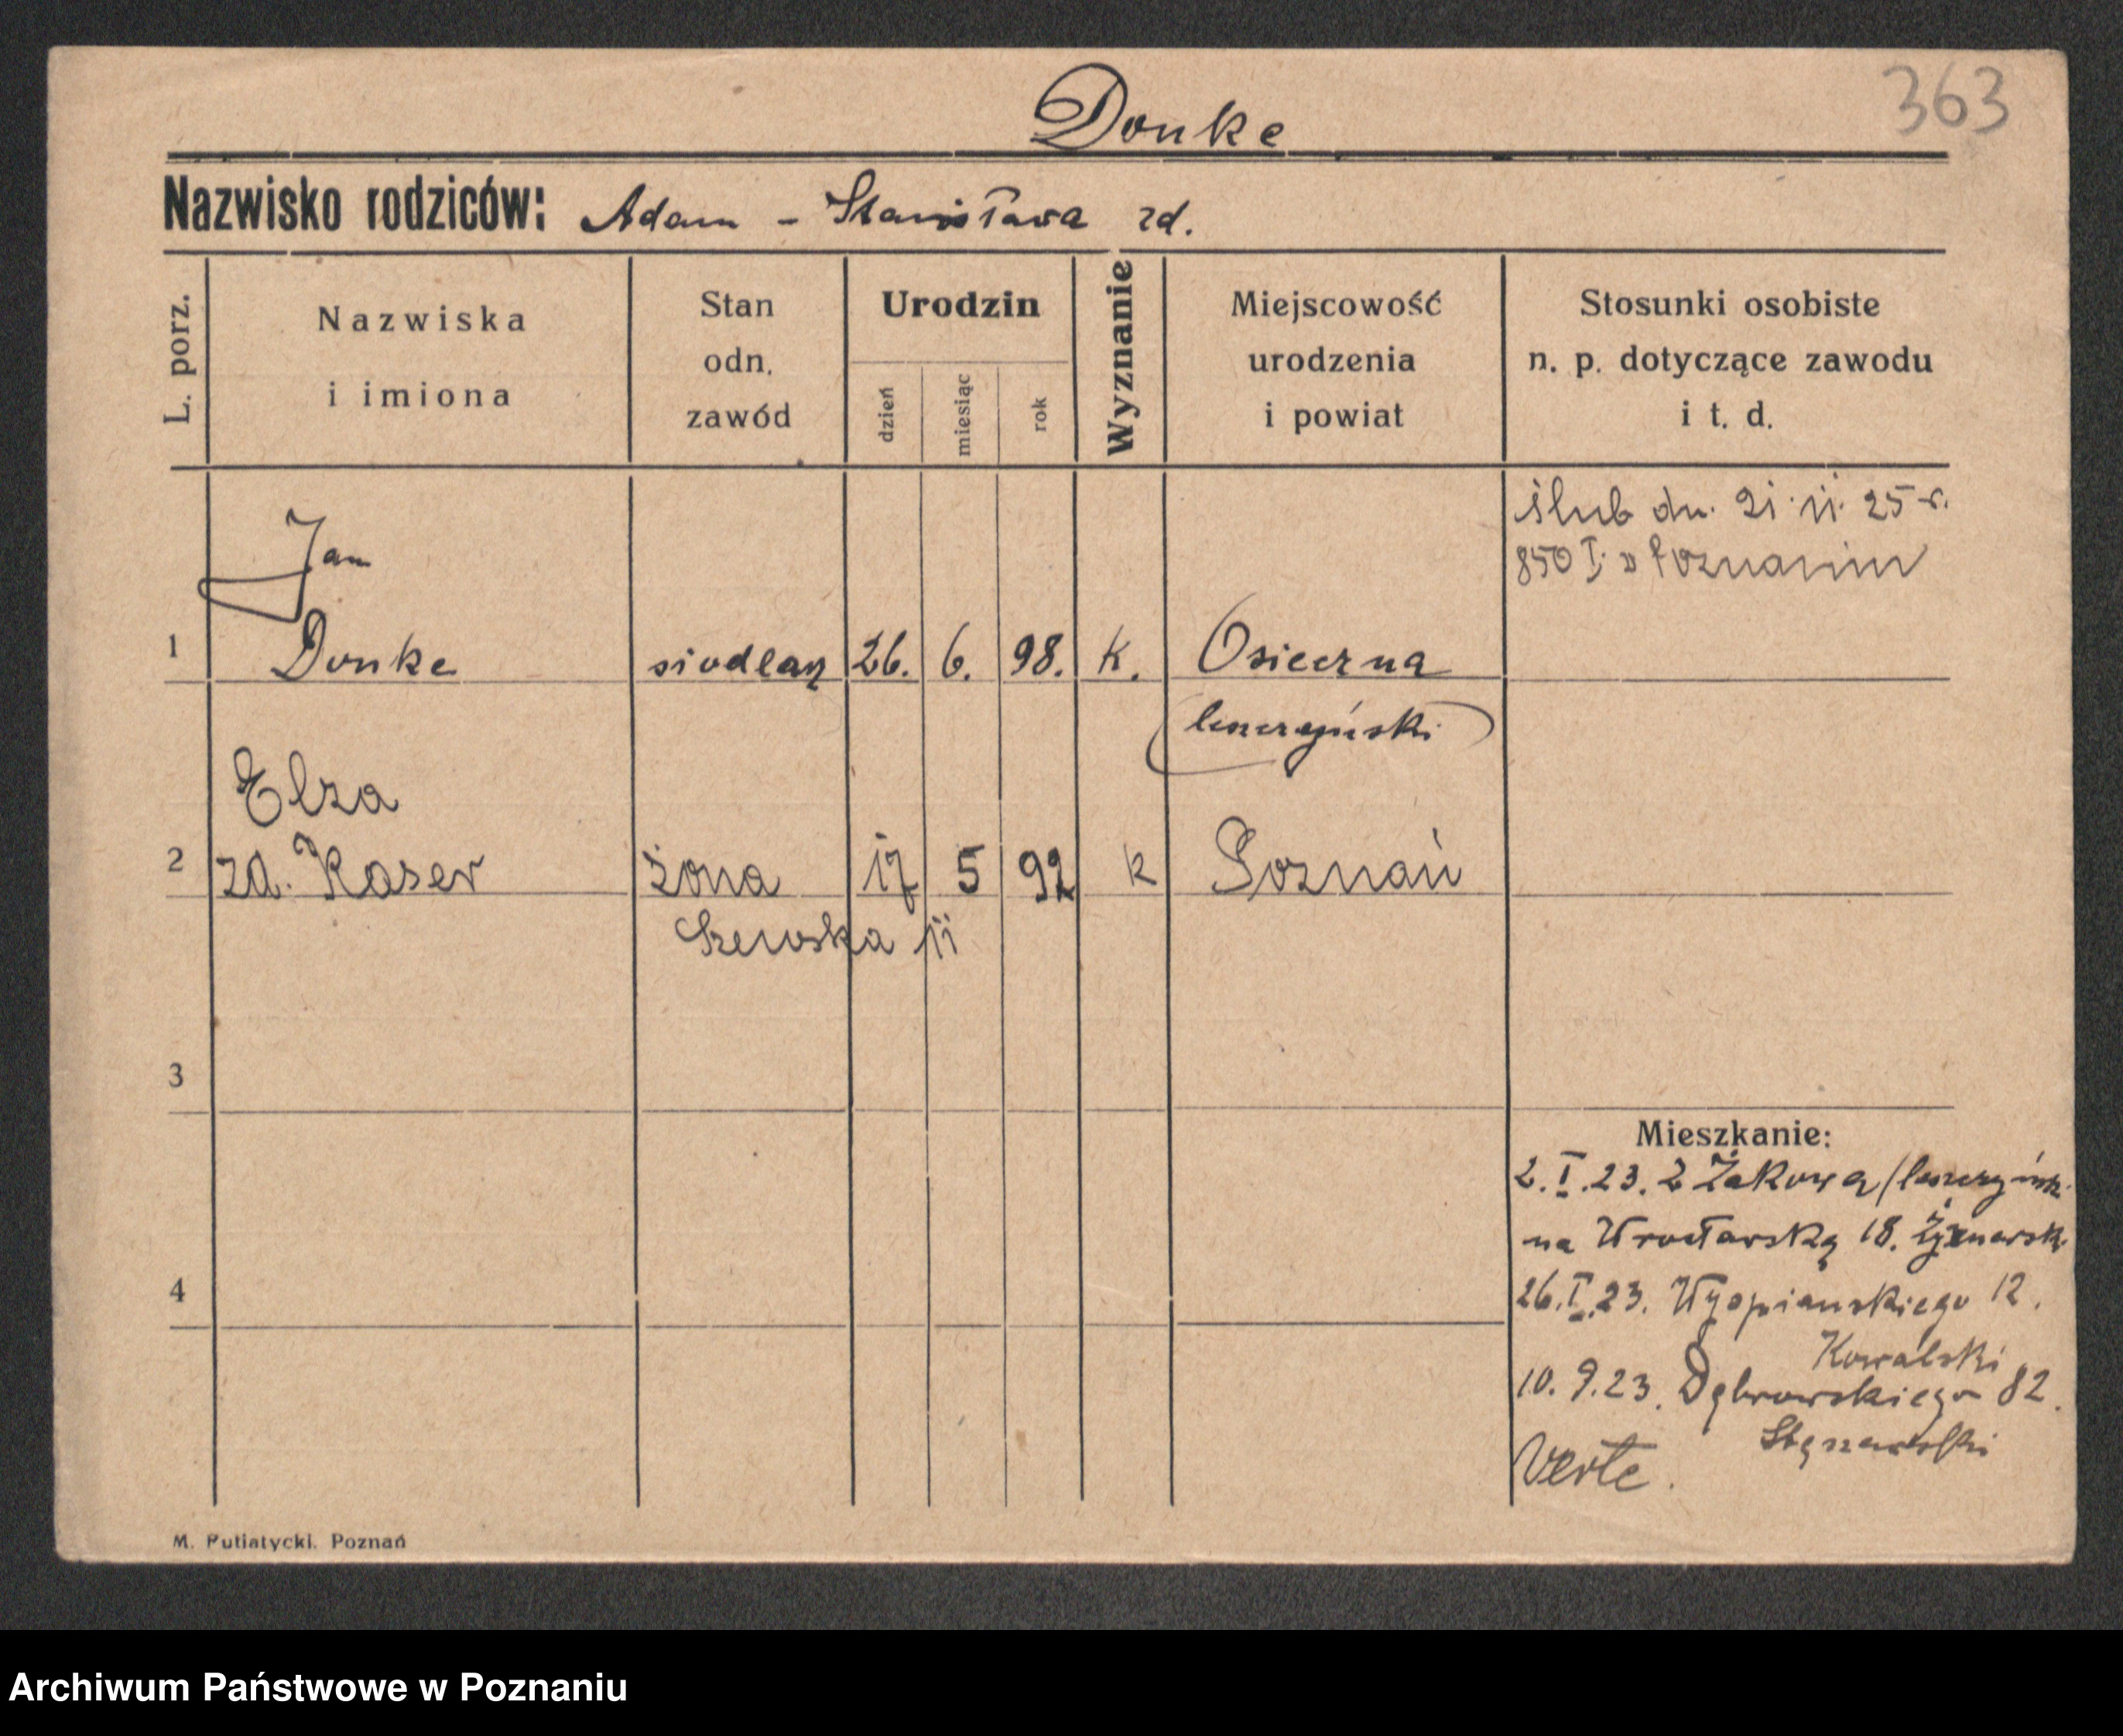 363
Donke
Nazwisko rodziców: Adam - Stanisława zd.
L. porz.
Nazwiska
i imiona
Stan
odn.
zawód
Urodzin
dzień
miesiąc
rok
Wyznanie
Miejscowość
urodzenia
i powiat
Stosunki osobiste
n. p. dotyczące zawodu
i t. d.
ślub dn. 21.11.25 r.
850 I. w Poznaniu
Jan
1 Donke siodlarz 26. 6. 98. K. Osieczna
(leszczyński)
Elza
2 zd. Kaser żona 17 5 92 k Poznań
Szewska 11
3
4
Mieszkanie:
2.I.23. z Żakowa (leszczyńsk.
na Wrocławską 18.
26.I.23. Wyspiańskiego 12.
Kowalski
10.9.23. Dąbrowskiego 82.
Verte.
M. Putiatycki. Poznań
Archiwum Państwowe w Poznaniu